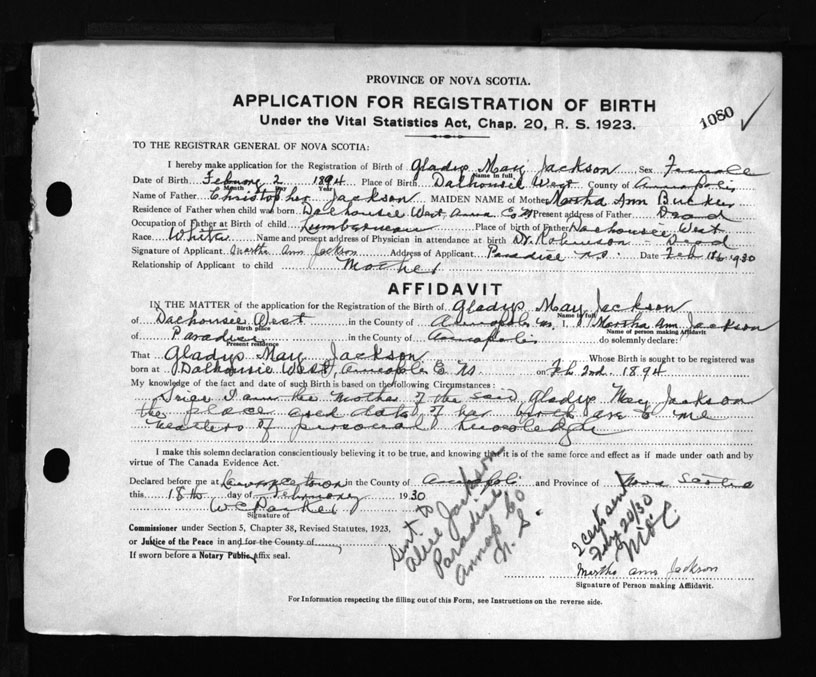 PROVINCE OF NOVA SCOTIA.
APPLICATION FOR REGISTRATION OF BIRTH
Under the Vital Statistics Act, Chap. 20, R. S. 1923.
1080 ✓
TO THE REGISTRAR GENERAL OF NOVA SCOTIA:
I hereby make application for the Registration of Birth of Gladys May Jackson Sex Female
Name in full
Date of Birth February 2 1894 Place of Birth Dalhousie West County of Annapolis
Month Day Year
Name of Father Christopher Jackson MAIDEN NAME of Mother Martha Ann Buckler
Residence of Father when child was born Dalhousie West, Anna Co Present address of Father Dead
Occupation of Father at Birth of child Lumberman Place of birth of Father Dalhousie West
Race White Name and present address of Physician in attendance at birth Dr. Robinson - Dead
Signature of Applicant Martha Ann Jackson Address of Applicant Paradise N.S. Date Feb 18th 1930
Relationship of Applicant to child Mother
AFFIDAVIT
IN THE MATTER of the application for the Registration of the Birth of Gladys May Jackson
Name in full
of Dalhousie West in the County of Annapolis I, Martha Ann Jackson
Birth place Name of person making Affidavit
of Paradise in the County of Annapolis do solemnly declare:
Present residence
That Gladys May Jackson Whose Birth is sought to be registered was
born at Dalhousie West, Annapolis Co NS. on Feb 2nd. 1894
My knowledge of the fact and date of such Birth is based on the following Circumstances:
I am the Mother of the said Gladys May Jackson
the place and date of her birth are to me
matters of personal knowledge
I make this solemn declaration conscientiously believing it to be true, and knowing that it is of the same force and effect as if made under oath and by
virtue of The Canada Evidence Act.
Declared before me at Lawrencetown in the County of Annapolis and Province of Nova Scotia
this 18th day of February 1930
W C Parker
Signature of
Commissioner under Section 5, Chapter 38, Revised Statutes, 1923,
or Justice of the Peace in and for the County of
If sworn before a Notary Public, affix seal.
Sent to
Alice Jackson
Paradise
Annap Co
N. S.
2 cert sent
Feby 20/30
Martha ann Jackson
Signature of Person making Affidavit.
For Information respecting the filling out of this Form, see Instructions on the reverse side.